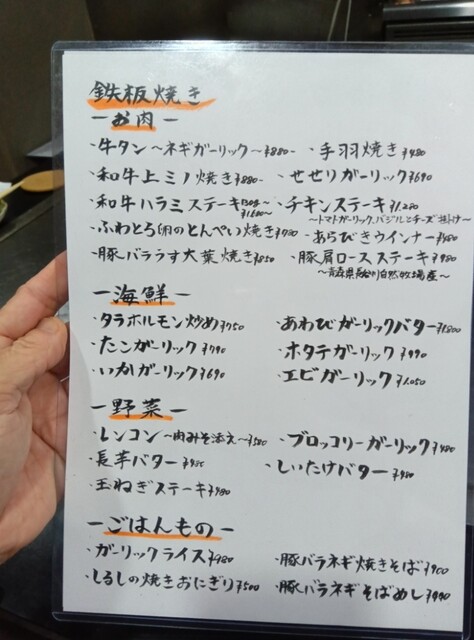 鉄板焼き
ーお肉ー
・牛タン 〜ネギガーリック〜 ¥880-
・手羽焼き ¥480
・和牛上ミノ焼き ¥880-
・せせりガーリック ¥690
・和牛ハラミステーキ
¥1,680〜
・チキンステーキ ¥1,280
〜トマトガーリック、バジルとチーズ掛け〜
・ふわとろ卵のとんぺい焼き ¥780
・あらびきウインナー ¥480
・豚バラうす大葉焼き ¥850
・豚肩ロースステーキ ¥980
〜青森県 自然牧場産〜
ー海鮮ー
・タラホルモン炒め ¥750
・あわびガーリックバター ¥1,800
・たこガーリック ¥790
・ホタテガーリック ¥990
・いかガーリック ¥690
・エビガーリック ¥1,050
ー野菜ー
・レンコン 〜肉みそ添え〜 ¥580
・ブロッコリーガーリック ¥480
・長芋バター ¥480
・しいたけバター ¥480
・玉ねぎステーキ ¥480
ーごはんものー
・ガーリックライス ¥980
・豚バラネギ焼きそば ¥900
・しるしの焼きおにぎり ¥500
・豚バラネギそばめし ¥990